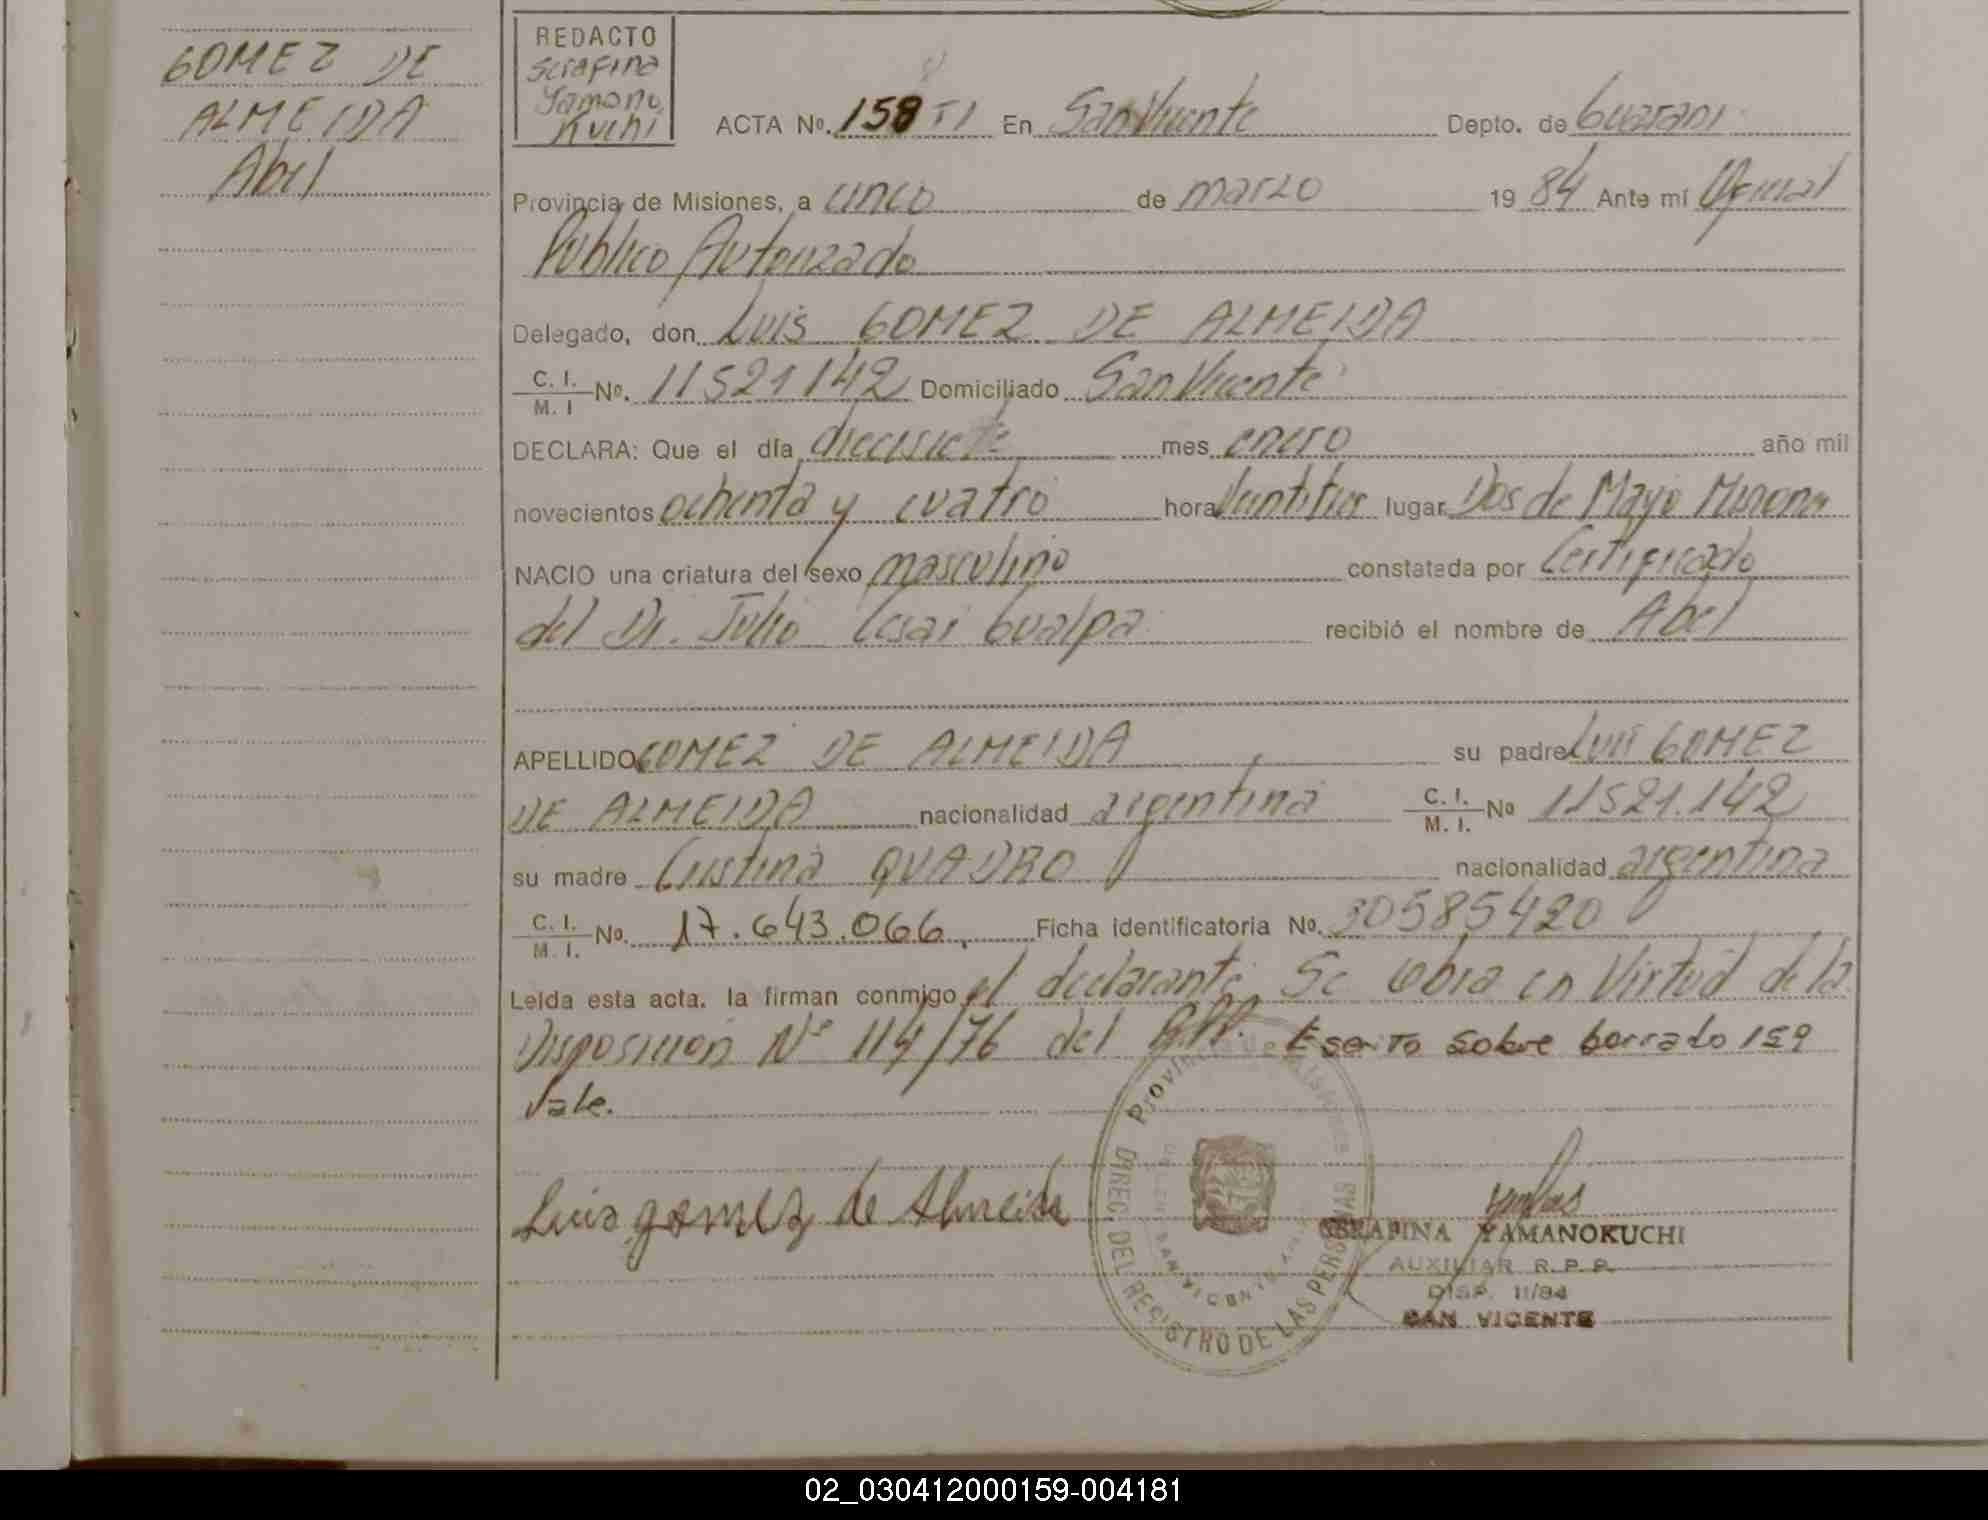 GOMEZ DE
ALMEIDA
Abel
REDACTO
Serafina
Yamano
Kuchi
ACTA Nº. 158 TI En San Vicente Depto. de Guarani
Provincia de Misiones, a cinco de marzo 1984 Ante mí Oficial
Publico Autorizado
Delegado, don Luis GOMEZ DE ALMEIDA
C. I. / M. I Nº. 11521142 Domiciliado San Vicente
DECLARA: Que el día diecisiete mes enero año mil
novecientos ochenta y cuatro hora Veintitres lugar Dos de Mayo Misiones
NACIO una criatura del sexo masculino constatada por Certificado
del Dr. Julio Cesar Gualpa recibió el nombre de Abel
APELLIDO GOMEZ DE ALMEIDA su padre Luis GOMEZ
DE ALMEIDA nacionalidad argentina C. I. / M. I. Nº 11521.142
su madre Cristina QUADRO nacionalidad argentina
C. I. / M. I. Nº. 17.643.066. Ficha identificatoria Nº. 30585420
Leída esta acta. la firman conmigo el declarante. Se labra en Virtud de la
Disposicion Nº 114/76 del Escrito sobre borrado 159
Vale.
Luis gomez de Almeida
Provincia de Misiones
DIREC. DEL REGISTRO DE LAS PERSONAS
SAN VICENTE
SERAFINA YAMANOKUCHI
AUXILIAR R. P. P.
DISP. 11/84
SAN VICENTE
02_030412000159-004181